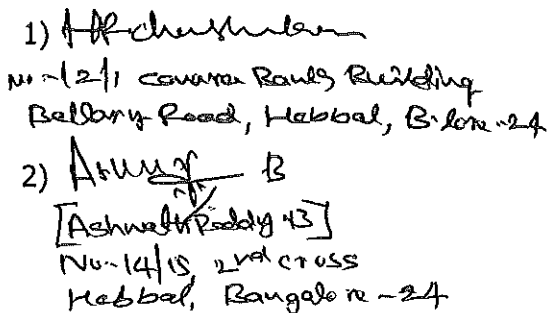 1)
No-12/1 Canara Bank Building
Bellary Road, Hebbal, B'lore-24
2) B
[Ashwath Reddy B]
No-14/15, 2nd cross
Hebbal, Bangalore-24